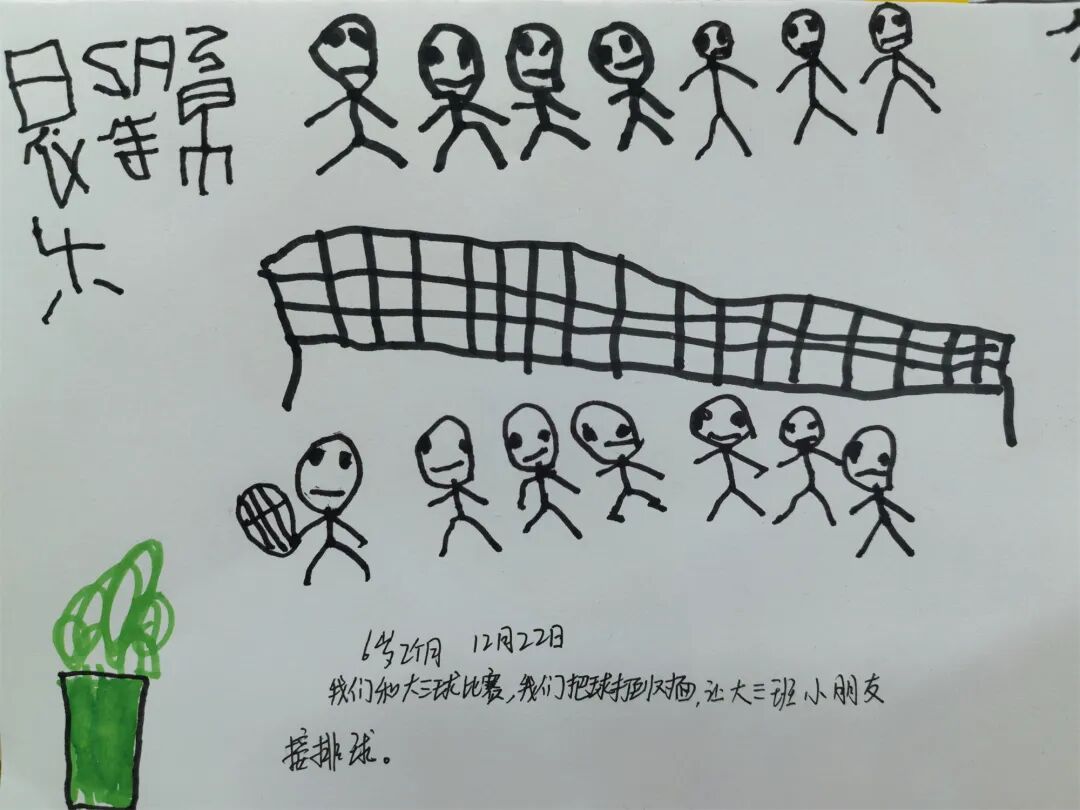 6岁2个月 12月22日
我们和大三球比赛,我们把球打到对面,让大三班小朋友
接排球。